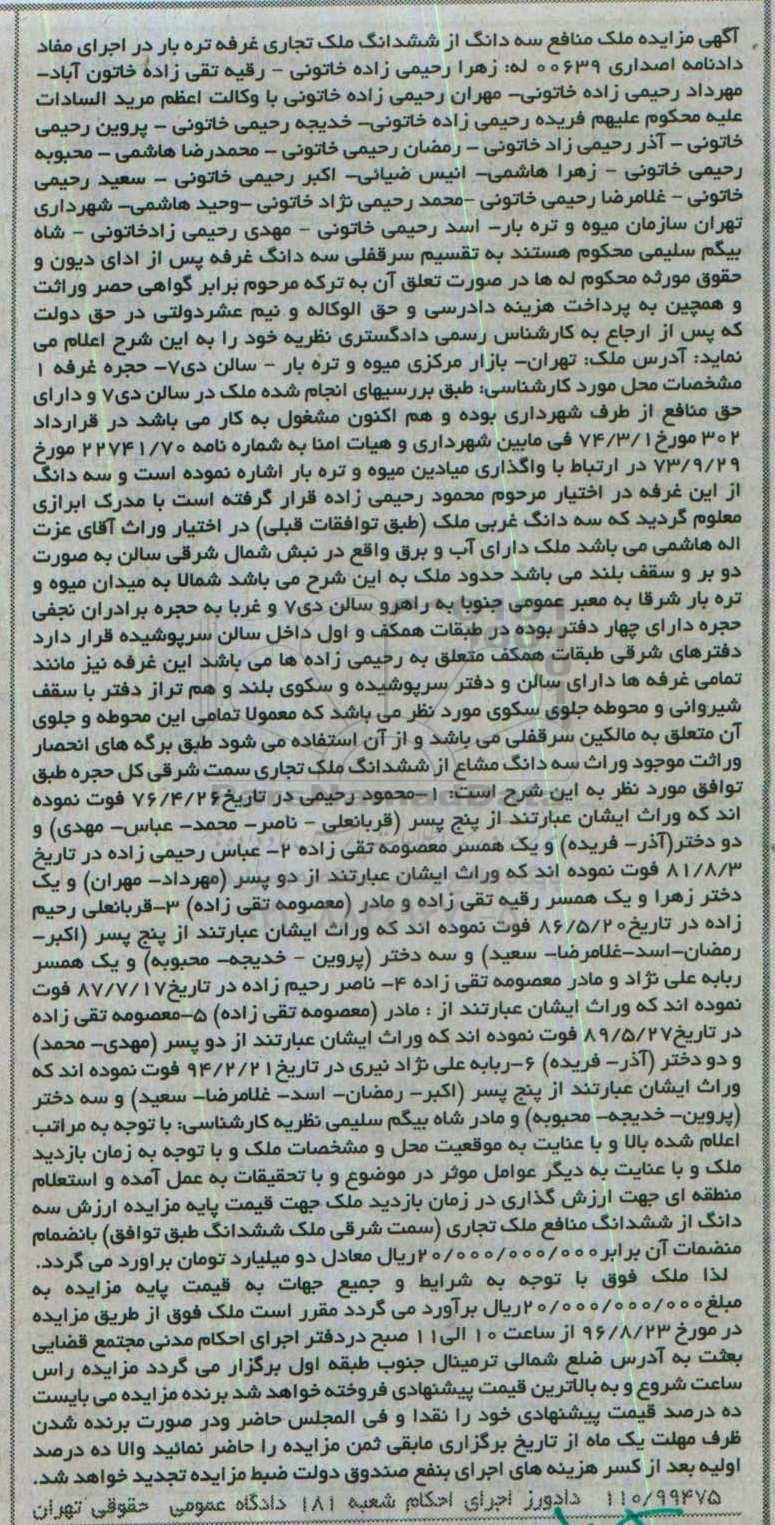 آگهی مزایده ملک منافع سه دانگ از ششدانگ ملک تجاری غرفه تره بار در اجرای مفاد
دادنامه اصداری ۰۰۶۳۹ له: زهرا رحیمی زاده خاتونی - رقیه تقی زاده خاتون آباد-
مهرداد رحیمی زاده خاتونی- مهران رحیمی زاده خاتونی با وکالت اعظم مرید السادات
علیه محکوم علیهم فریده رحیمی زاده خاتونی- خدیجه رحیمی خاتونی - پروین رحیمی
خاتونی - آذر رحیمی زاد خاتونی - رمضان رحیمی خاتونی - محمدرضا هاشمی - محبوبه
رحیمی خاتونی - زهرا هاشمی- انیس ضیائی- اکبر رحیمی خاتونی - سعید رحیمی
خاتونی - غلامرضا رحیمی خاتونی -محمد رحیمی نژاد خاتونی -وحید هاشمی- شهرداری
تهران سازمان میوه و تره بار- اسد رحیمی خاتونی - مهدی رحیمی زادخاتونی - شاه
بیگم سلیمی محکوم هستند به تقسیم سرقفلی سه دانگ غرفه پس از ادای دیون و
حقوق مورثه محکوم له ها در صورت تعلق آن به ترکه مرحوم برابر گواهی حصر وراثت
و همچین به پرداخت هزینه دادرسی و حق الوکاله و نیم عشردولتی در حق دولت
که پس از ارجاع به کارشناس رسمی دادگستری نظریه خود را به این شرح اعلام می
نماید: آدرس ملک: تهران- بازار مرکزی میوه و تره بار - سالن دی۷- حجره غرفه ۱
مشخصات محل مورد کارشناسی: طبق بررسیهای انجام شده ملک در سالن دی۷ و دارای
حق منافع از طرف شهرداری بوده و هم اکنون مشغول به کار می باشد در قرارداد
۳۰۲ مورخ۷۴/۳/۱ فی مابین شهرداری و هیات امنا به شماره نامه ۲۲۷۴۱/۷۰ مورخ
۷۳/۹/۲۹ در ارتباط با واگذاری میادین میوه و تره بار اشاره نموده است و سه دانگ
از این غرفه در اختیار مرحوم محمود رحیمی زاده قرار گرفته است با مدرک ابرازی
معلوم گردید که سه دانگ غربی ملک (طبق توافقات قبلی) در اختیار وراث آقای عزت
اله هاشمی می باشد ملک دارای آب و برق واقع در نبش شمال شرقی سالن به صورت
دو بر و سقف بلند می باشد حدود ملک به این شرح می باشد شمالا به میدان میوه و
تره بار شرقا به معبر عمومی جنوبا به راهرو سالن دی۷ و غربا به حجره برادران نجفی
حجره دارای چهار دفتر بوده در طبقات همکف و اول داخل سالن سرپوشیده قرار دارد
دفترهای شرقی طبقات همکف متعلق به رحیمی زاده ها می باشد این غرفه نیز مانند
تمامی غرفه ها دارای سالن و دفتر سرپوشیده و سکوی بلند و هم تراز دفتر با سقف
شیروانی و محوطه جلوی سکوی مورد نظر می باشد که معمولا تمامی این محوطه و جلوی
آن متعلق به مالکین سرقفلی می باشد و از آن استفاده می شود طبق برگه های انحصار
وراثت موجود وراث سه دانگ مشاع از ششدانگ ملک تجاری سمت شرقی کل حجره طبق
توافق مورد نظر به این شرح است: ۱-محمود رحیمی در تاریخ۷۶/۴/۲۶ فوت نموده
اند که وراث ایشان عبارتند از پنج پسر (قربانعلی - ناصر- محمد- عباس- مهدی) و
دو دختر(آذر- فریده) و یک همسر معصومه تقی زاده ۲- عباس رحیمی زاده در تاریخ
۸۱/۸/۳ فوت نموده اند که وراث ایشان عبارتند از دو پسر (مهرداد- مهران) و یک
دختر زهرا و یک همسر رقیه تقی زاده و مادر (معصومه تقی زاده) ۳-قربانعلی رحیم
زاده در تاریخ۸۶/۵/۲۰ فوت نموده اند که وراث ایشان عبارتند از پنج پسر (اکبر-
رمضان-اسد-غلامرضا- سعید) و سه دختر (پروین - خدیجه- محبوبه) و یک همسر
ربابه علی نژاد و مادر معصومه تقی زاده ۴- ناصر رحیم زاده در تاریخ۸۷/۷/۱۷ فوت
نموده اند که وراث ایشان عبارتند از : مادر (معصومه تقی زاده) ۵-معصومه تقی زاده
در تاریخ۸۹/۵/۲۷ فوت نموده اند که وراث ایشان عبارتند از دو پسر (مهدی- محمد)
و دو دختر (آذر- فریده) ۶-ربابه علی نژاد نیری در تاریخ۹۴/۲/۲۱ فوت نموده اند که
وراث ایشان عبارتند از پنج پسر (اکبر- رمضان- اسد- غلامرضا- سعید) و سه دختر
(پروین- خدیجه- محبوبه) و مادر شاه بیگم سلیمی نظریه کارشناسی: با توجه به مراتب
اعلام شده بالا و با عنایت به موقعیت محل و مشخصات ملک و با توجه به زمان بازدید
ملک و با عنایت به دیگر عوامل موثر در موضوع و با تحقیقات به عمل آمده و استعلام
منطقه ای جهت ارزش گذاری در زمان بازدید ملک جهت قیمت پایه مزایده ارزش سه
دانگ از ششدانگ منافع ملک تجاری (سمت شرقی ملک ششدانگ طبق توافق) بانضمام
منضمات آن برابر۲۰/۰۰۰/۰۰۰/۰۰۰ریال معادل دو میلیارد تومان براورد می گردد.
لذا ملک فوق با توجه به شرایط و جمیع جهات به قیمت پایه مزایده به
مبلغ۲۰/۰۰۰/۰۰۰/۰۰۰ریال برآورد می گردد مقرر است ملک فوق از طریق مزایده
در مورخ ۹۶/۸/۲۳ از ساعت ۱۰ الی۱۱ صبح دردفتر اجرای احکام مدنی مجتمع قضایی
بعثت به آدرس ضلع شمالی ترمینال جنوب طبقه اول برگزار می گردد مزایده راس
ساعت شروع و به بالاترین قیمت پیشنهادی فروخته خواهد شد برنده مزایده می بایست
ده درصد قیمت پیشنهادی خود را نقدا و فی المجلس حاضر ودر صورت برنده شدن
ظرف مهلت یک ماه از تاریخ برگزاری مابقی ثمن مزایده را حاضر نمائید والا ده درصد
اولیه بعد از کسر هزینه های اجرای بنفع صندوق دولت ضبط مزایده تجدید خواهد شد.
۱۱۰/۹۹۴۷۵ دادورز اجرای احکام شعبه ۱۸۱ دادگاه عمومی حقوقی تهران